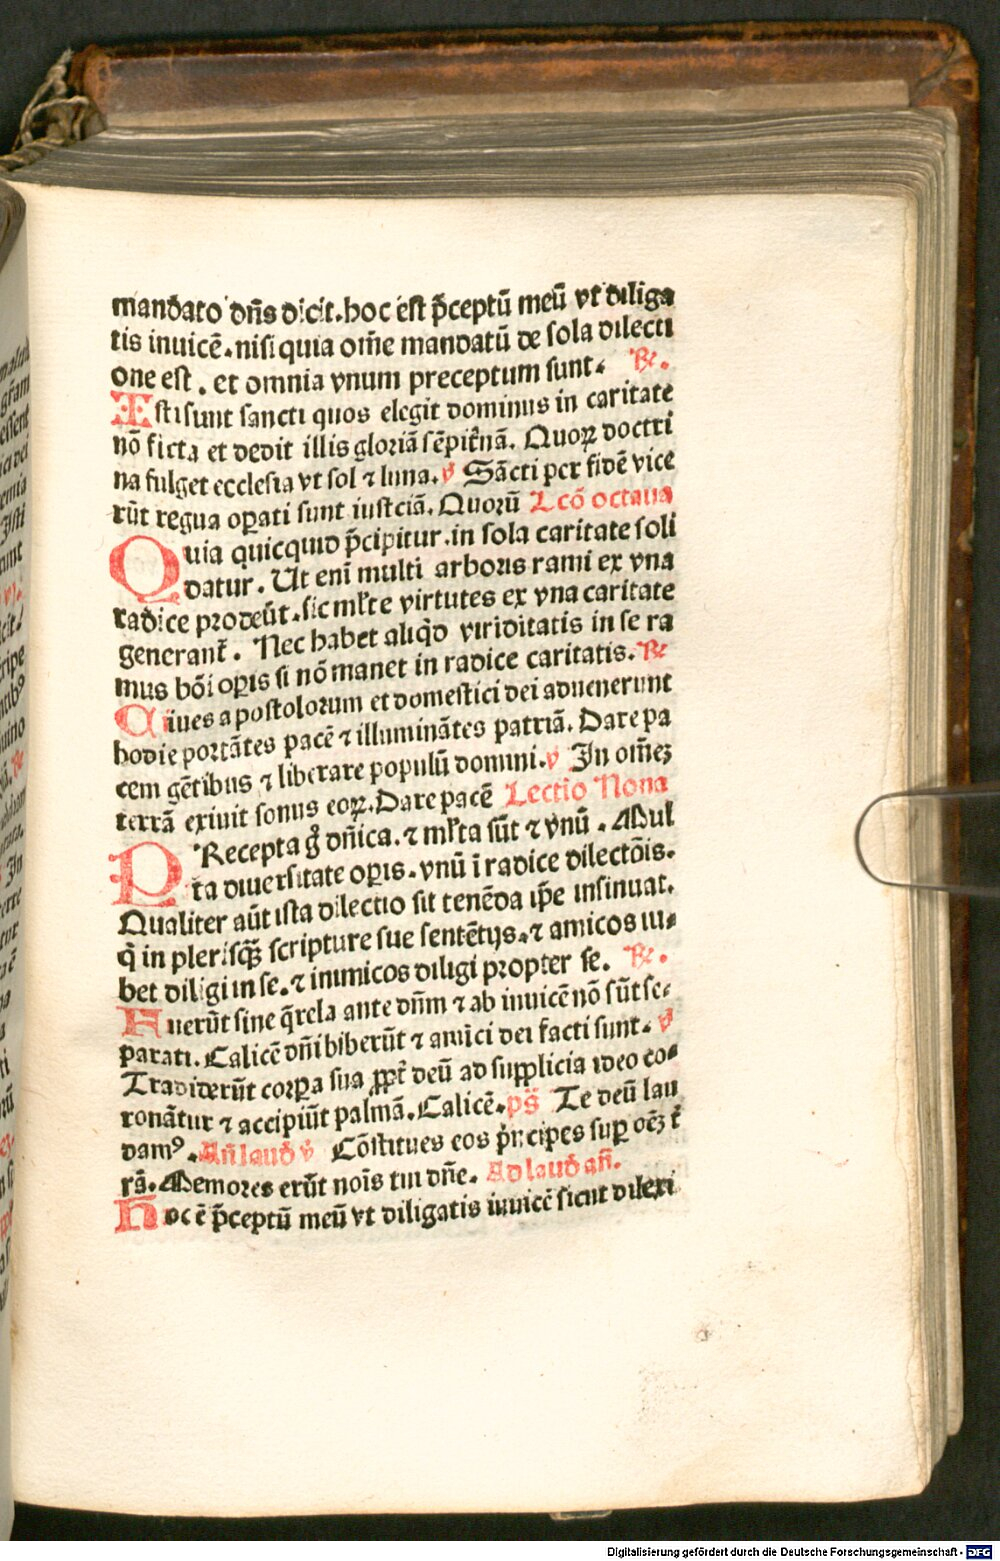 mandato dn̄s dicit. hoc est p̄ceptū meū vt diliga
tis inuicē. nisi quia om̄e mandatū de sola dilecti
one est. et omnia vnum preceptum sunt. ℟.
Isti sunt sancti quos elegit dominus in caritate
nō ficta et dedit illis gloriā sēpit̄nā. Quoꝝ doctri
na fulget ecclesia vt sol ⁊ luna. ℣ Sācti per fidē vice
rūt regna oꝑati sunt iustciā. Quorū Lcō octaua
Quia quicquid p̄cipitur. in sola caritate soli
datur. Ut eni multi arboris rami ex vna
radice prodeūt. sic ml̄te virtutes ex vna caritate
generant̄. Nec habet aliq̇d viriditatis in se ra
mus bōi oꝑis si nō manet in radice caritatis. ℟
Ciues apostolorum et domestici dei aduenerunt
hodie portātes pacē ⁊ illuminātes patriā. Dare pa
cem gētibus ⁊ liberare populū domini. ℣ In om̄eꝫ
terrā exiuit sonus eoꝝ. Dare pacē Lectio Nona
PRecepta g̊ dn̄ica. ⁊ ml̄ta sūt ⁊ vnū. Mul
ta diuersitate oꝑis. vnū ī radice dilectōis.
Qualiter aūt ista dilectio sit tenēda ip̄e insinuat.
q̇ in pleriscꝫ scripture sue sentētijs. ⁊ amicos iu-
bet diligi in se. ⁊ inimicos diligi propter se. ℟.
Fuerūt sine q̄rela ante dn̄m ⁊ ab inuicē nō sūt se-
parati. Calicē dn̄i biberūt ⁊ amici dei facti sunt. ℣
Tradiderūt corꝑa sua ꝓpt̄ deū ad supplicia ideo co-
ronātur ⁊ accipiūt palmā. Calicē. ps̄ Te deū lau
damꝰ. An̄ laud̄ ℣ Cōstitues eos pn̄cipes suꝑ oēꝫ t̄
rā. Memores erūt nois̄ tui dn̄e. Ad laud̄ an̄.
Hoc ē p̄ceptū meū vt diligatis inuicē sicut dilexi
Digitalisierung gefördert durch die Deutsche Forschungsgemeinschaft - DFG